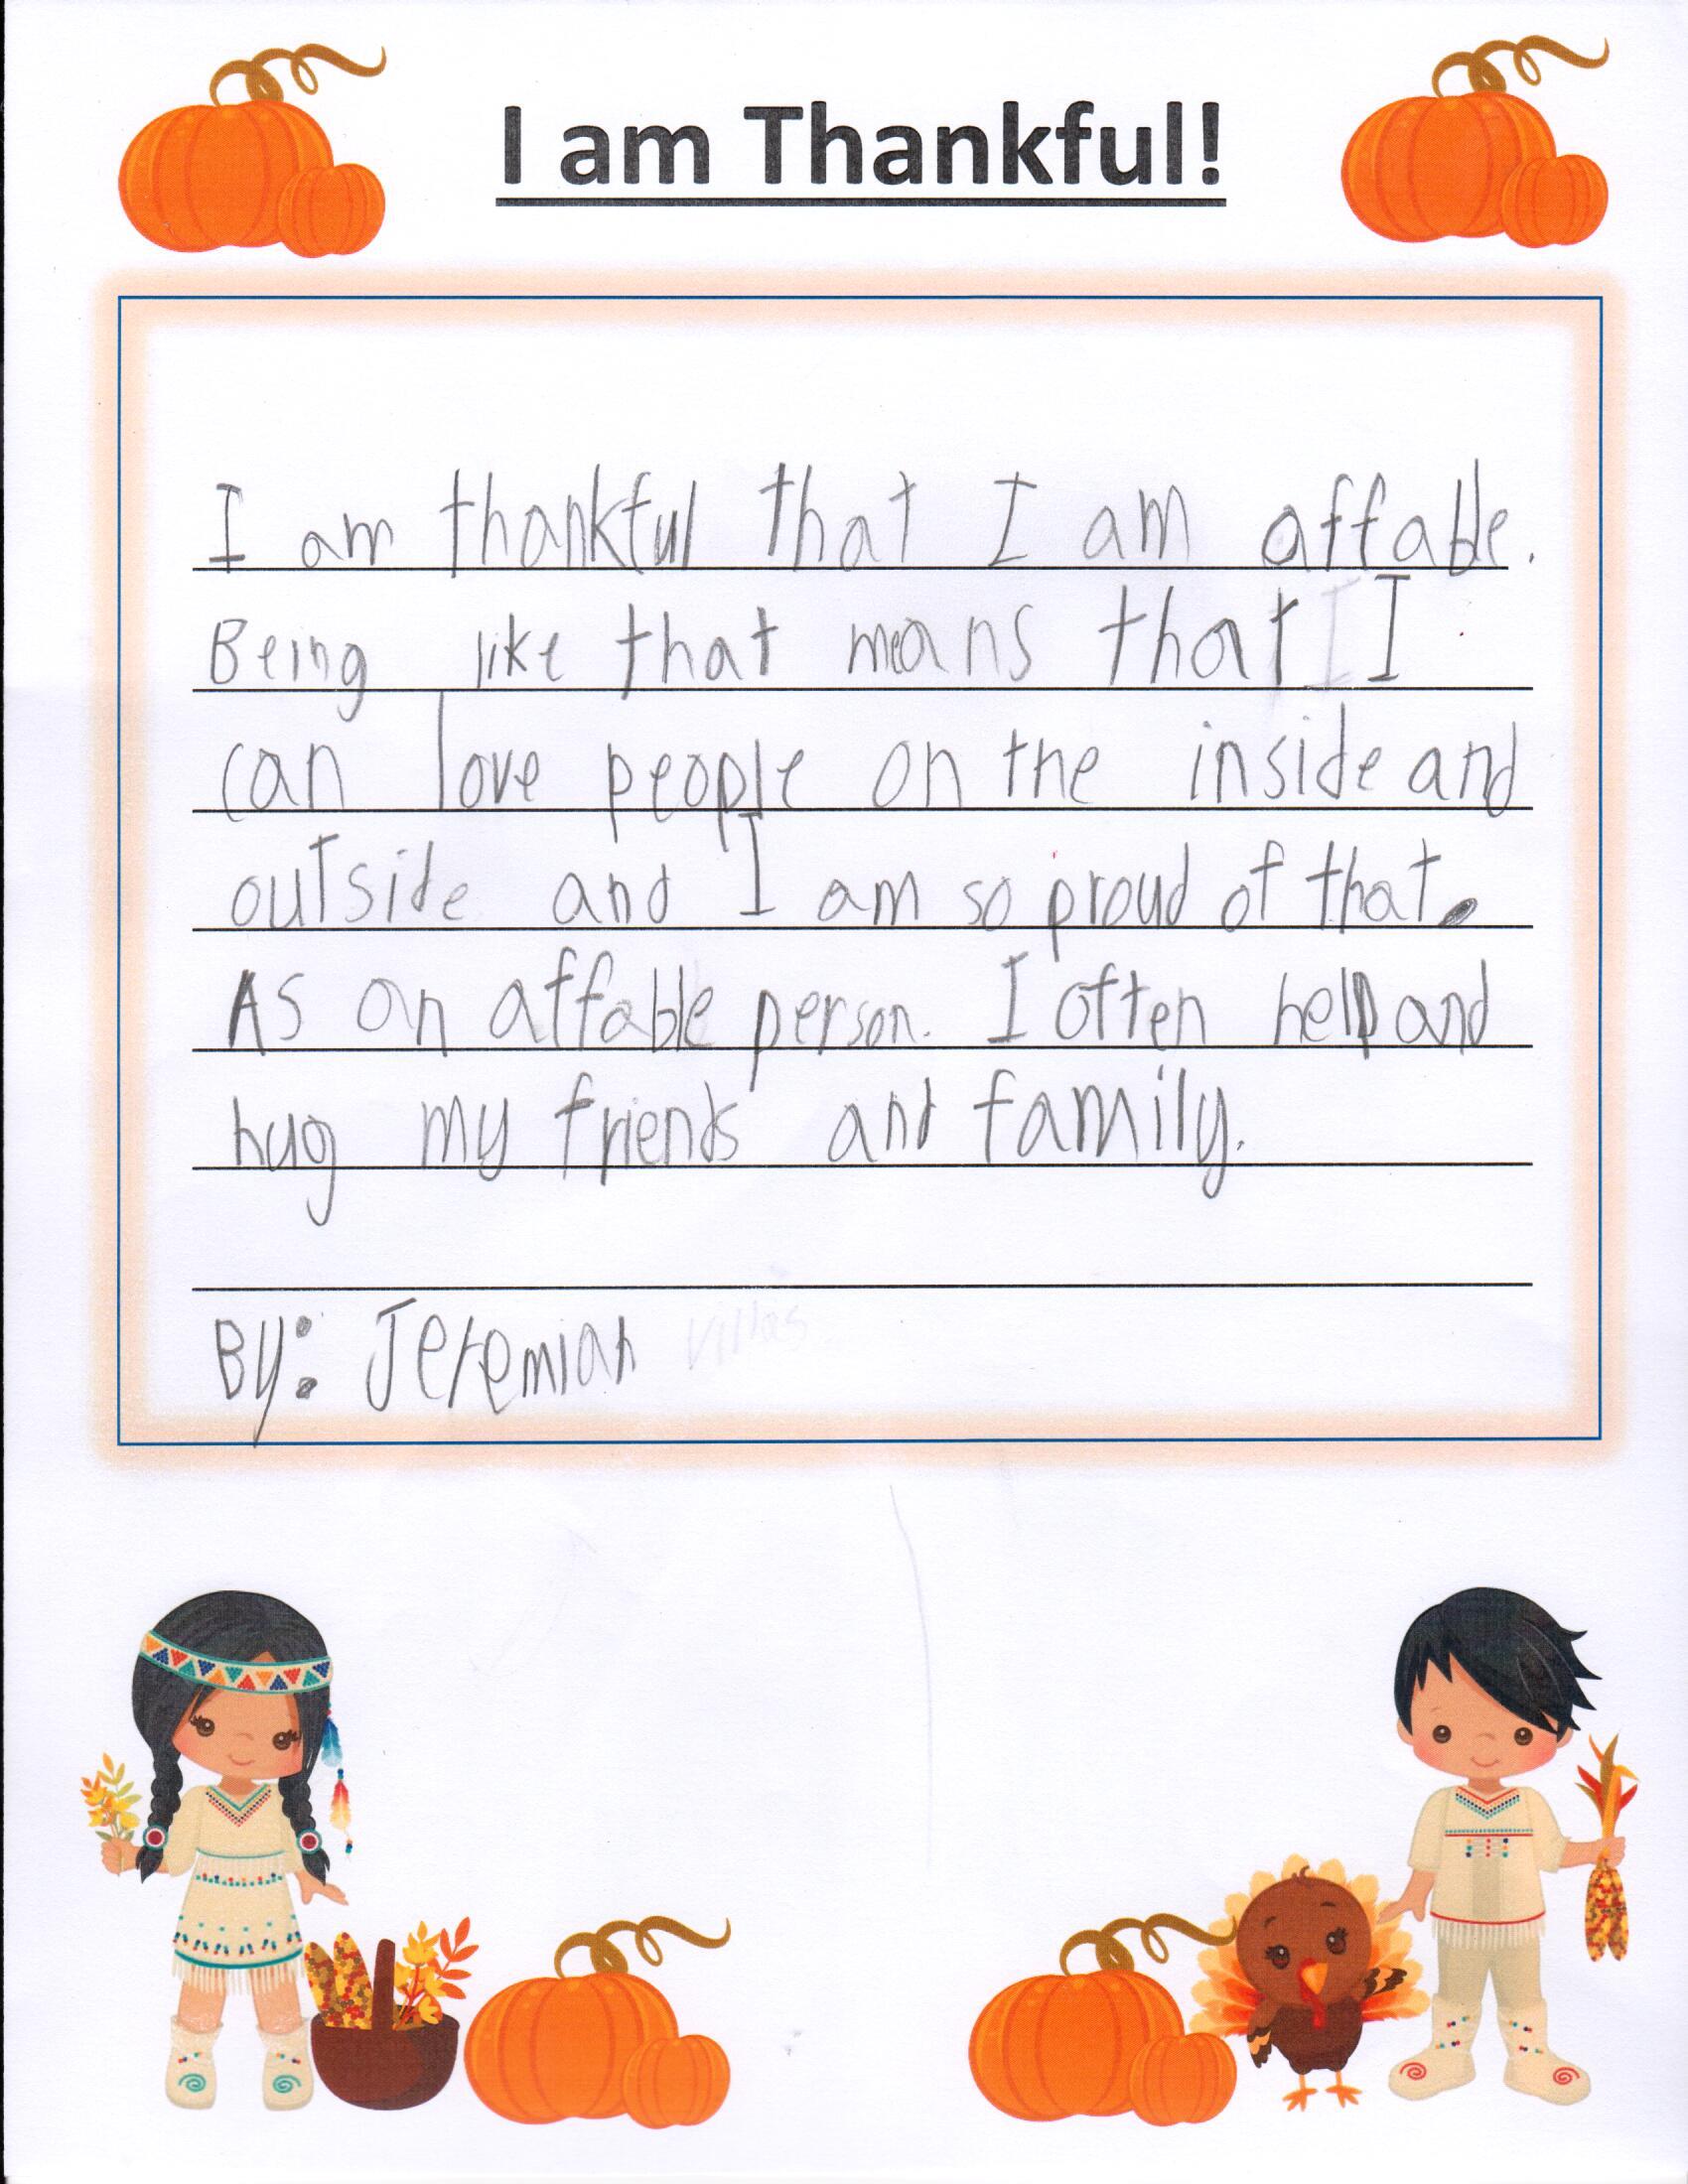 I am Thankful!
I am thankful that I am affable.
Being like that means that I
can love people on the inside and
outside and I am so proud of that.
As an affable person. I often help and
hug my friends and family.
By: Jeremiah